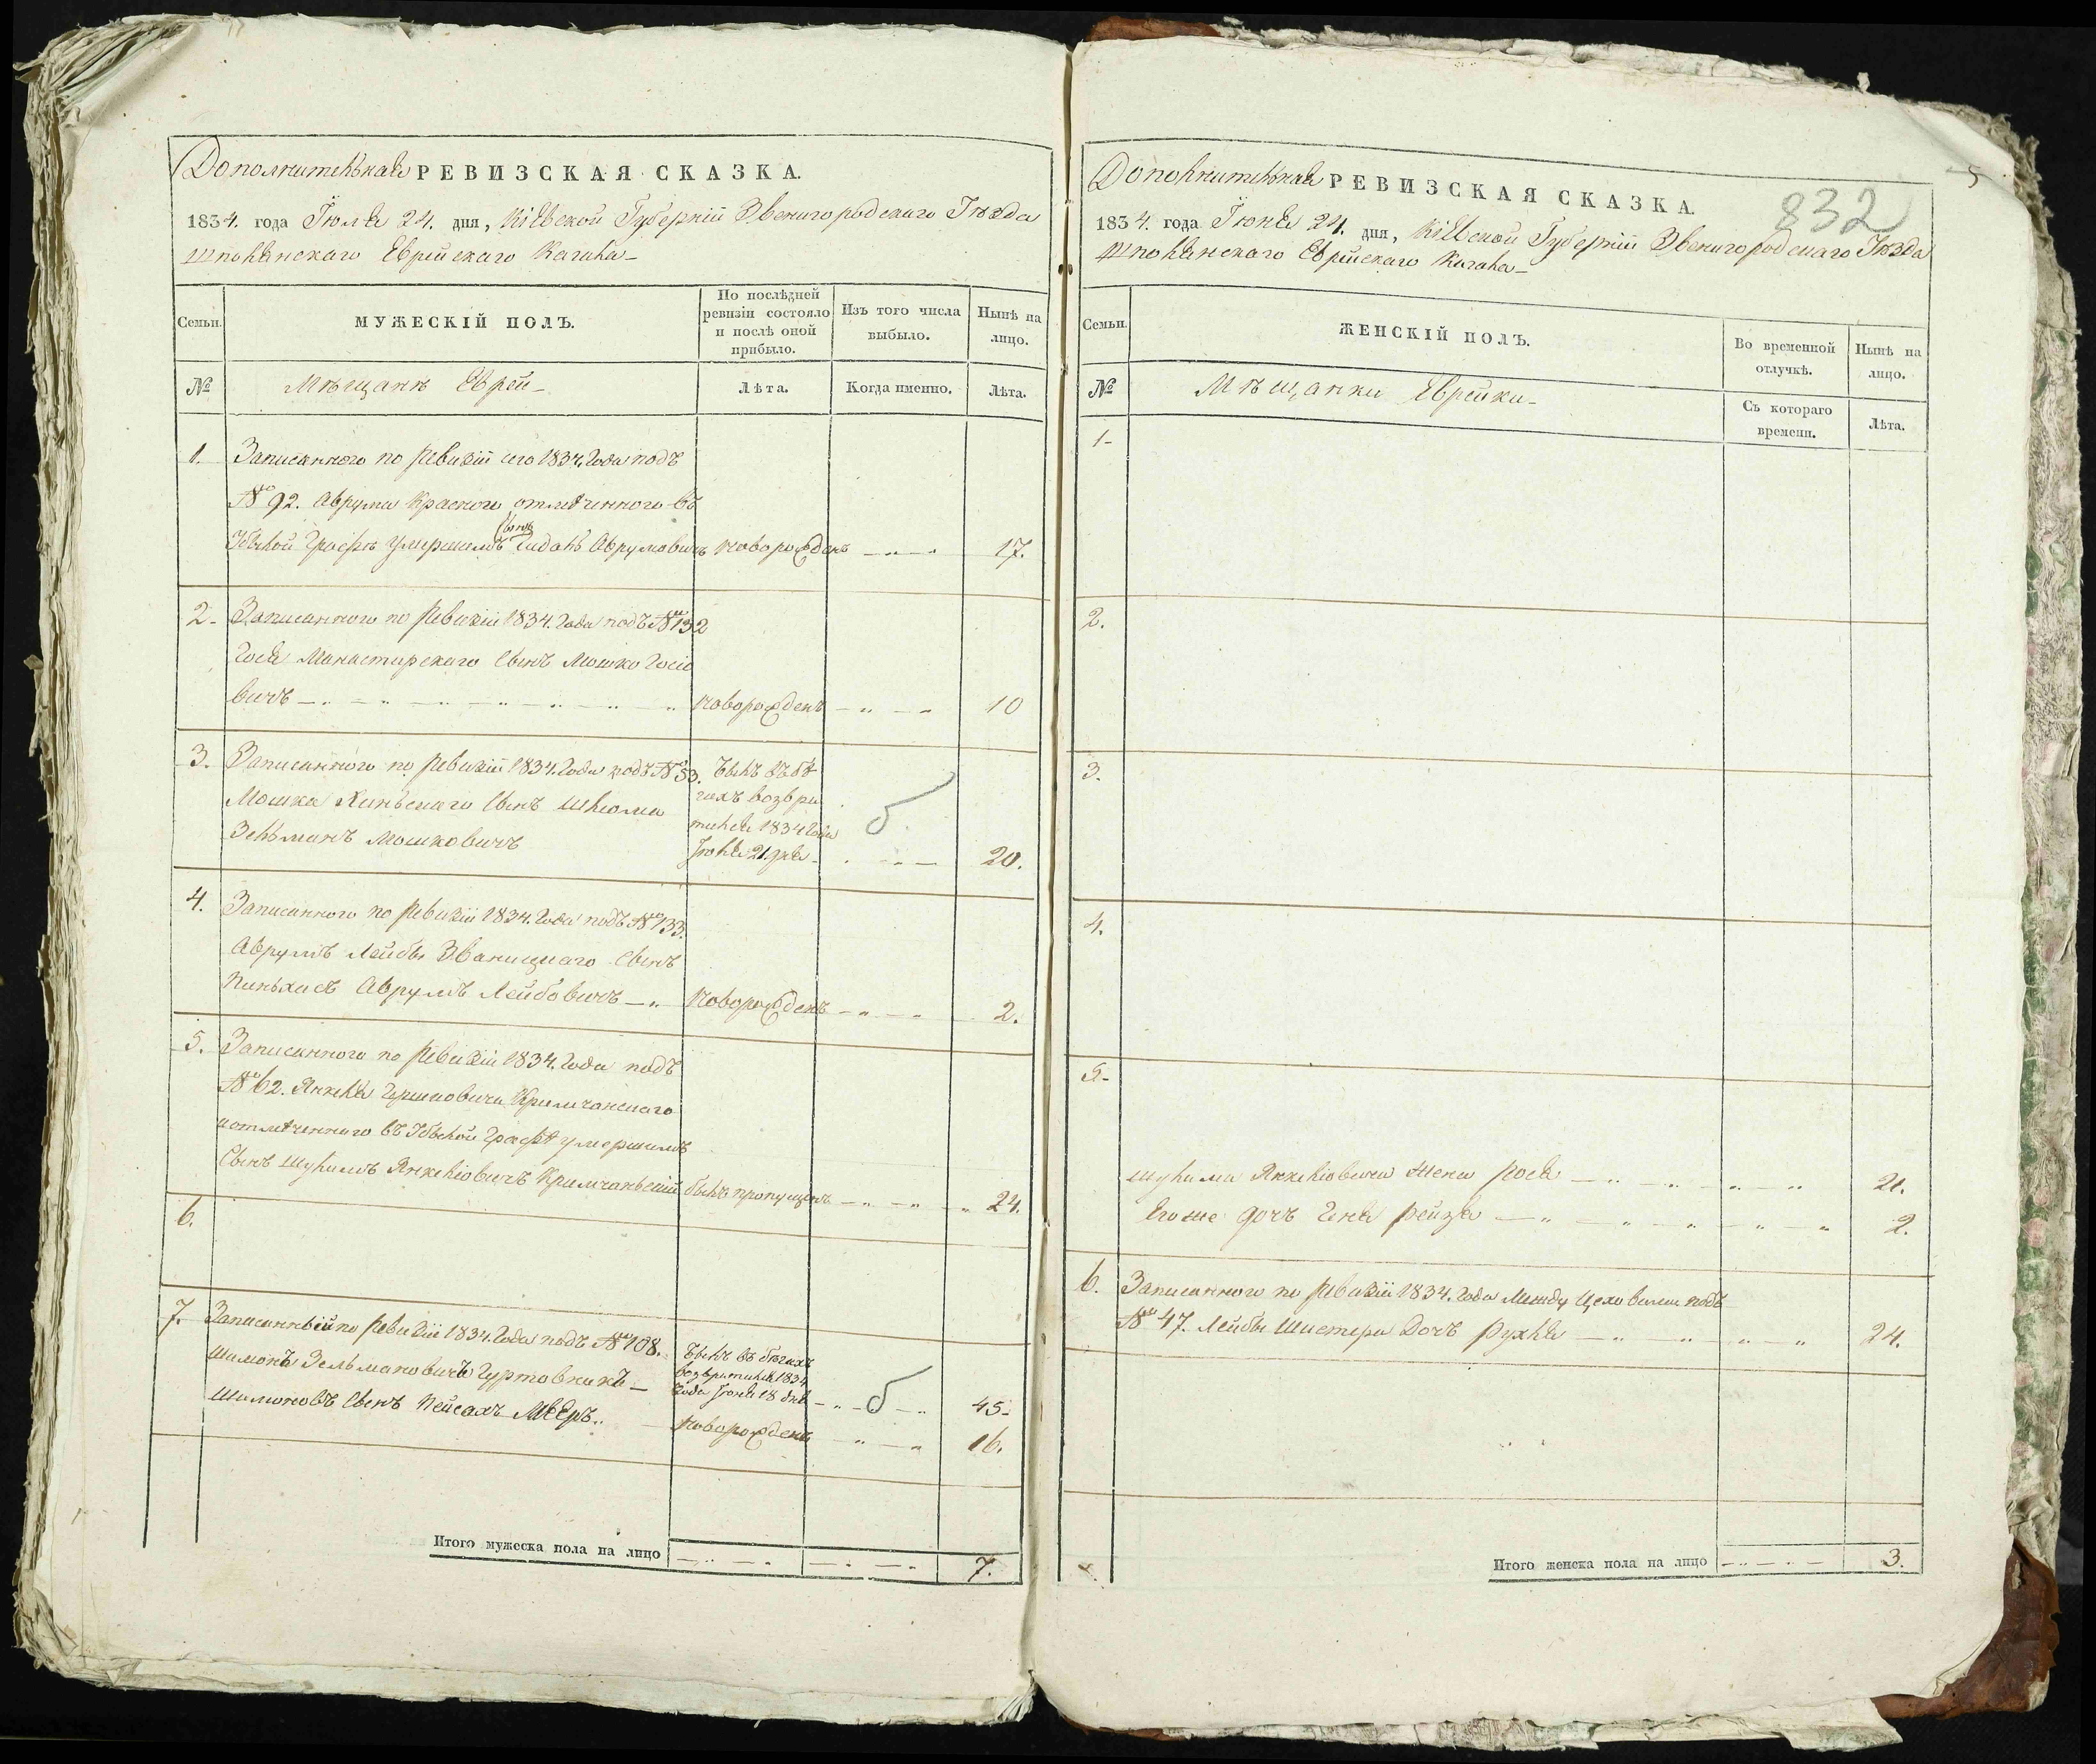 Дополнительная РЕВИЗСКАЯ СКАЗКА.
1834. года Іюля 24. дня, Кіевской Губерніи Звенигородскаго Уѣзда
Шполянскаго Еврейскаго Кагала
Семьи.
МУЖЕСКІЙ ПОЛЪ.
По послѣдней ревизіи состояло и послѣ оной прибыло.
Изъ того числа выбыло.
Нынѣ на лицо.
№
Мѣщане Евреи
Лѣта.
Когда именно.
Лѣта.
1. Записанного по ревизіи сего 1834. Года подъ
№ 92. Аврума Красного отмѣченного въ
Убылой Графѣ умершимъ сынъ Аврумовичъ новорожденъ 17.
2. Записанного по ревизіи 1834. Года подъ № 132
Іося Манастирскаго сынъ Мошко Іосіо
вичъ новорожденъ 10
3. Записанного по ревизіи 1834. Года подъ № 53. былъ въ бѣ
Мошка сынъ Шліома гахъ возвра
тился 1834 Года
Зельманъ Мошковичъ 21 дня 20.
б
4. Записанного по ревизіи 1834. Года подъ № 133.
Аврумъ Лейбы Званицкаго сынъ
Пинькасъ Аврумъ Лейбовичъ новорожденъ 2.
5. Записанного по ревизіи 1834. Года подъ
№ 62. Янкеля Гершковича Кримчанскаго
и отмѣченного въ Убылой Графѣ умершимъ
сынъ Шулимъ Янкеліовичъ Кримчанскій былъ пропущенъ 24.
6.
7. Записанный по ревизіи 1834. Года подъ № 108. былъ въ бѣгахъ
возвратился 1834
Шимонъ Зельмановичъ Гуртовникъ Года Іюня 18 дня б 45.
Шимоновъ сынъ Пейсахъ Мееръ новорожденъ 16.
Итого мужеска пола на лицо 7.
5
832
Дополнительная РЕВИЗСКАЯ СКАЗКА.
1834. года Іюня 24. дня, Кіевской Губерніи Звенигородскаго Уѣзда
Шполянскаго Еврейскаго Кагала
Семьи.
ЖЕНСКІЙ ПОЛЪ.
Во временной отлучкѣ.
Нынѣ на лицо.
№
Мѣщанки Еврейки
Съ котораго времени.
Лѣта.
1
2.
3.
4.
5
Шулима Янкеліовича жена Рося 21.
Его же дочъ Рейзя 2.
6. Записанного по ревизіи 1834. Года Между Цеховыми подъ
№ 47. Лейбы Шистера дочъ Рухля 24.
Итого женска пола на лицо 3.